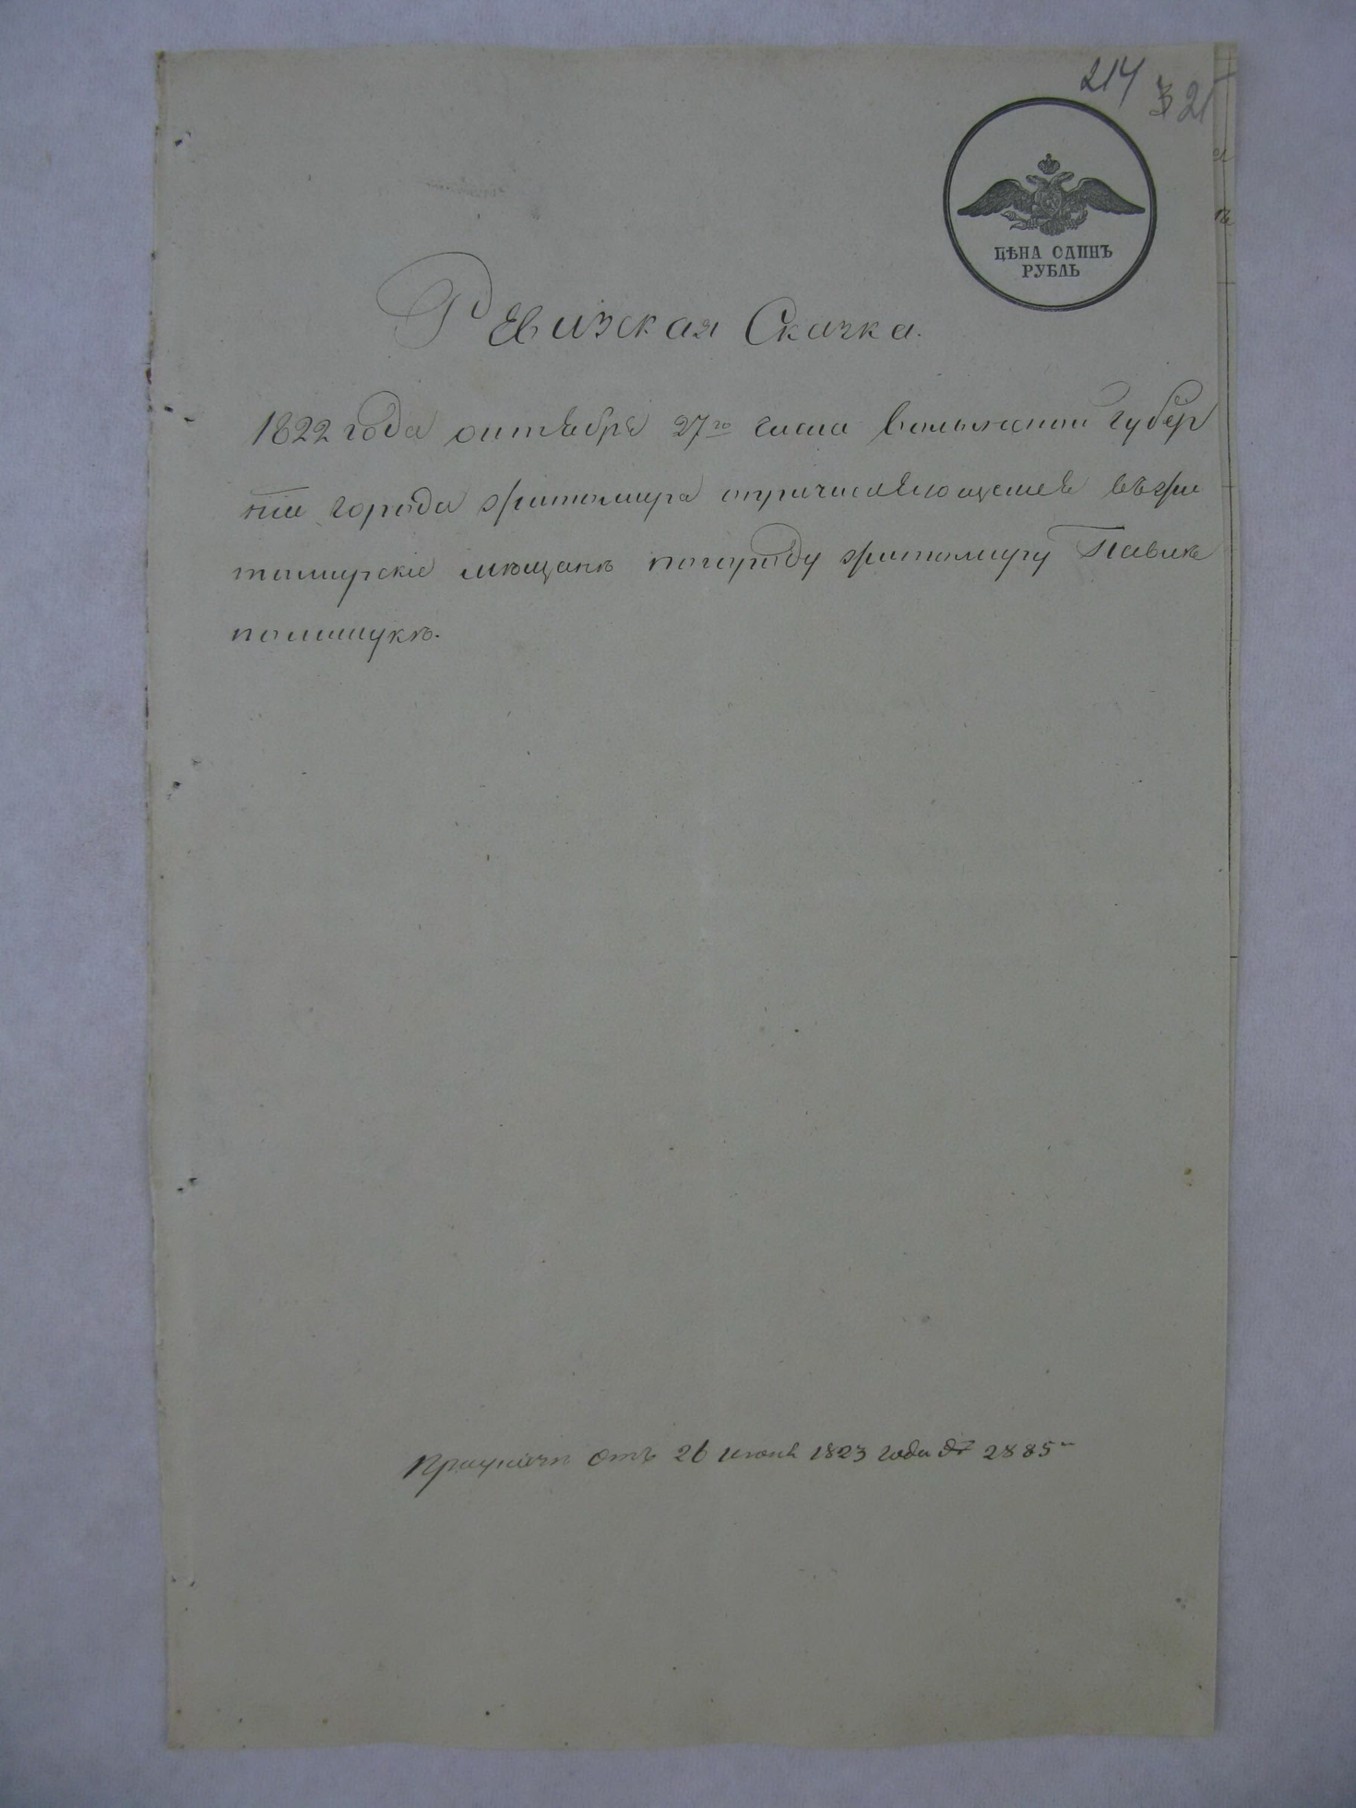 214
321
ЦѢНА ОДИНЪ
РУБЛЬ
Ревизская Сказка.
1822 года октября 27го числа волынской губер
нии города житомира о причисляющемся въ жи
томирские мещане по городу житомиру Павле
полищуке.
отъ 26 июня 1823 года № 2885